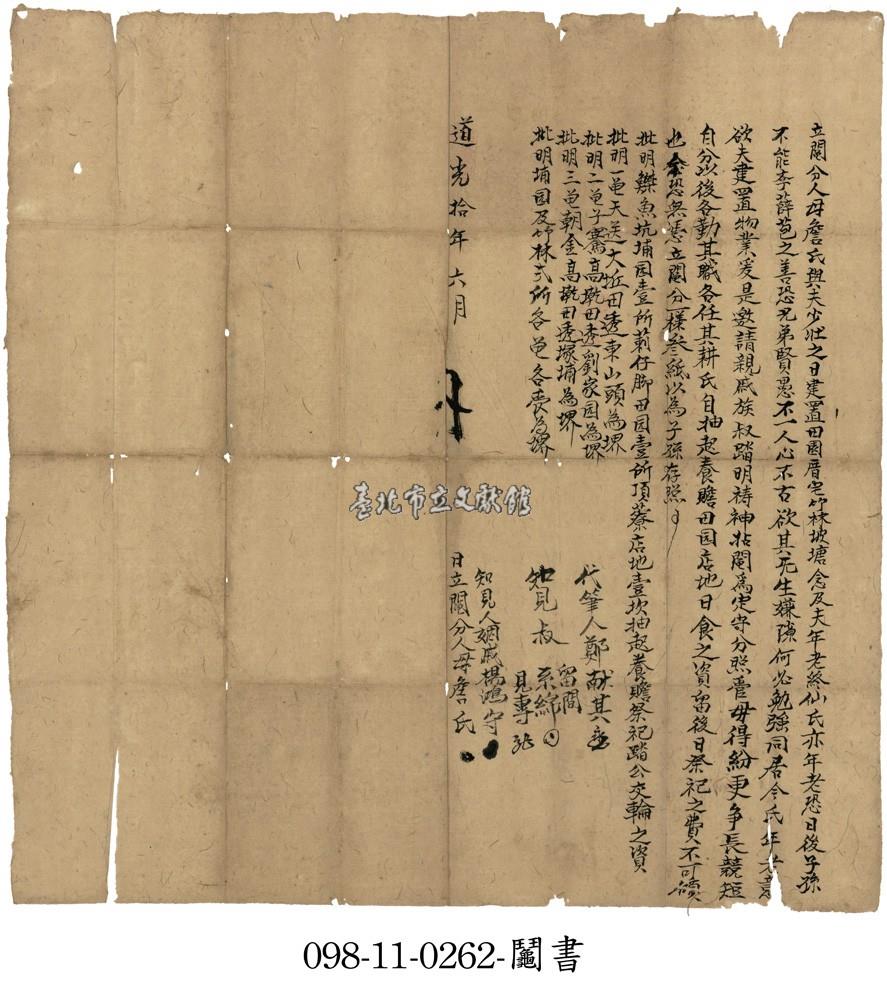 立鬮分人母詹氏與夫少壯之日建置田園厝宅竹林坡塘念及夫年老終仙氏亦年老恐日後子孫
不能李薛苞之善恐兄弟賢愚不一人心不古欲其无生嫌隙何必勉強同居今氏年老意
欲夫建置物業爰是邀請親戚族叔踏明祷神拈鬮為定守分照管毋得紛更争長競短
自分以後各勤其職各任其耕氏自抽起養贍田园店地日食之資留後日祭祀之費不可
也恐無憑立鬮分一樣叁紙以為子孫存照
批明鰱魚坑埔园壹所莿仔脚田园壹所頂藔店地壹坎抽起養贍祭祀踏公交輪之資
批明一鬮天送大坵田透東山頭為堺
批明二鬮子騫高墘田透劉家园為堺
批明三鬮朝金高墘田透塚埔為堺
批明埔园及竹林弍所各鬮各管為堺
代筆人鄭献其
知見叔
留問
系綿
見專
知見人姻戚楊鴻守
道光拾年六月 日立鬮分人母詹氏
臺北市立文獻館
098-11-0262-鬮書